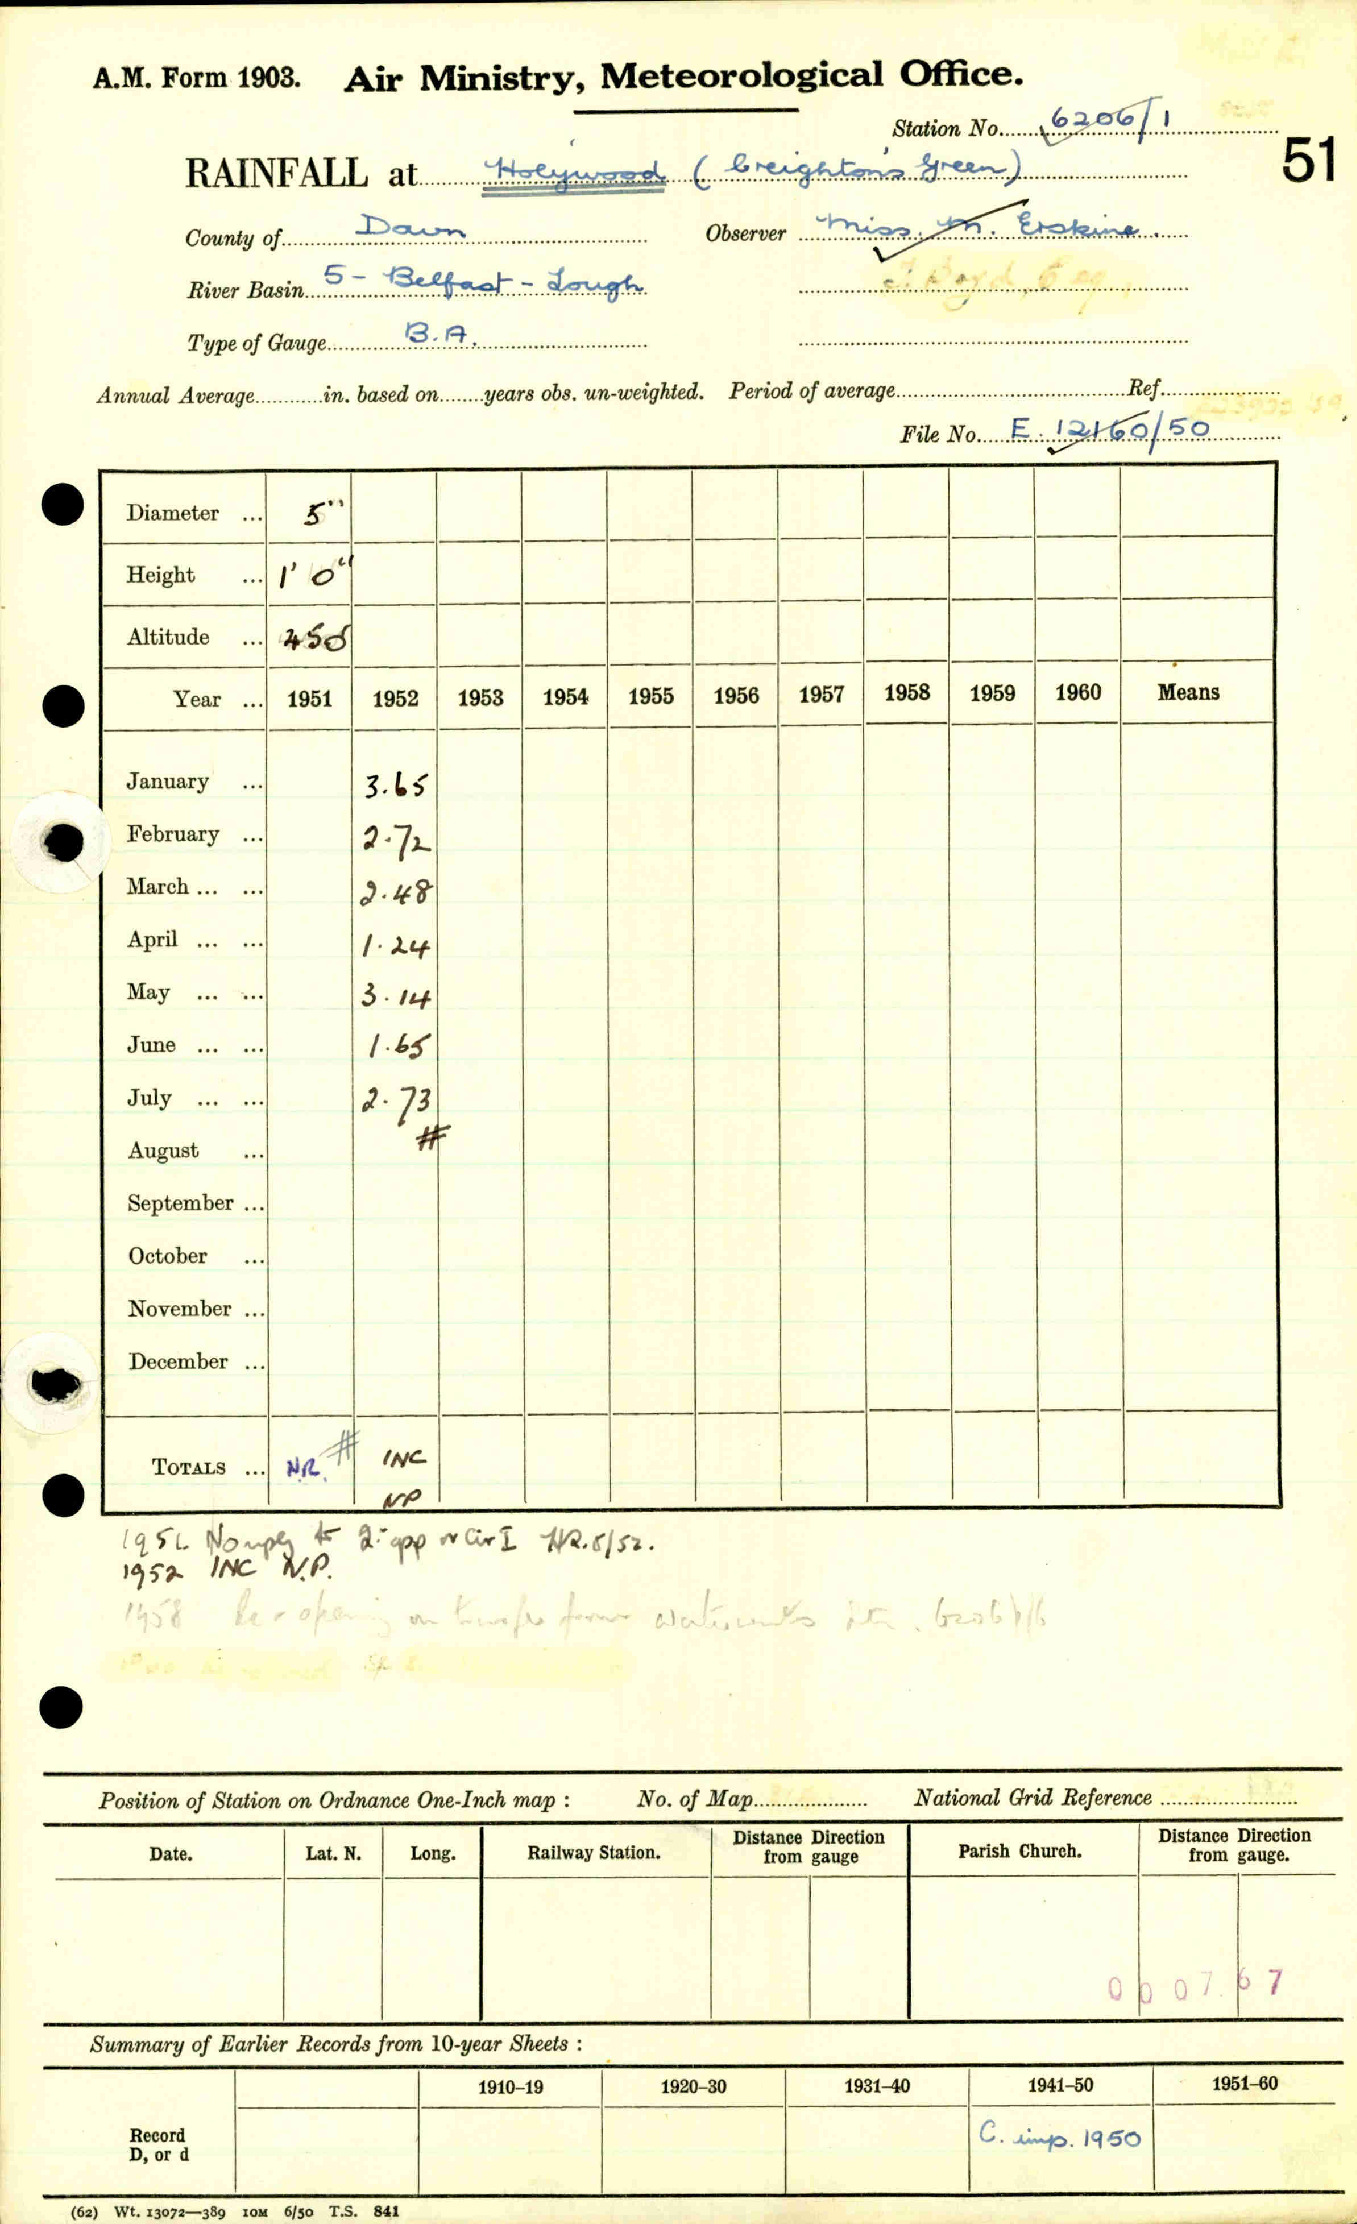 A.M. Form 1903. Air Ministry, Meteorological Office.
Station No. 6206/1
51
RAINFALL at Holywood (Creighton's Green)
County of Down
Observer Miss. M. Erskine.
River Basin 5 - Belfast - Lough
Type of Gauge B.A.
Annual Average in. based on years obs. un-weighted. Period of average Ref.
File No. E. 12160/50
Diameter ... 5"
Height ... 1' 0"
Altitude ... 450
Year ... 1951 1952 1953 1954 1955 1956 1957 1958 1959 1960 Means
January ... 3.65
February ... 2.72
March ... ... 2.48
April ... ... 1.24
May ... ... 3.14
June ... ... 1.65
July ... ... 2.73
#
August ...
September ...
October ...
November ...
December ...
TOTALS ... N.R. # INC
NP
1951 No reply to 2 app or Cir I 5/52.
1952 INC N.P.
1958 Re-opening on
Position of Station on Ordnance One-Inch map : No. of Map National Grid Reference
Date. Lat. N. Long. Railway Station. Distance Direction from gauge Parish Church. Distance Direction from gauge.
000767
Summary of Earlier Records from 10-year Sheets :
1910–19 1920–30 1931–40 1941–50 1951–60
Record
D, or d
C. imp. 1950
(62) Wt. 13072—389 10M 6/50 T.S. 841